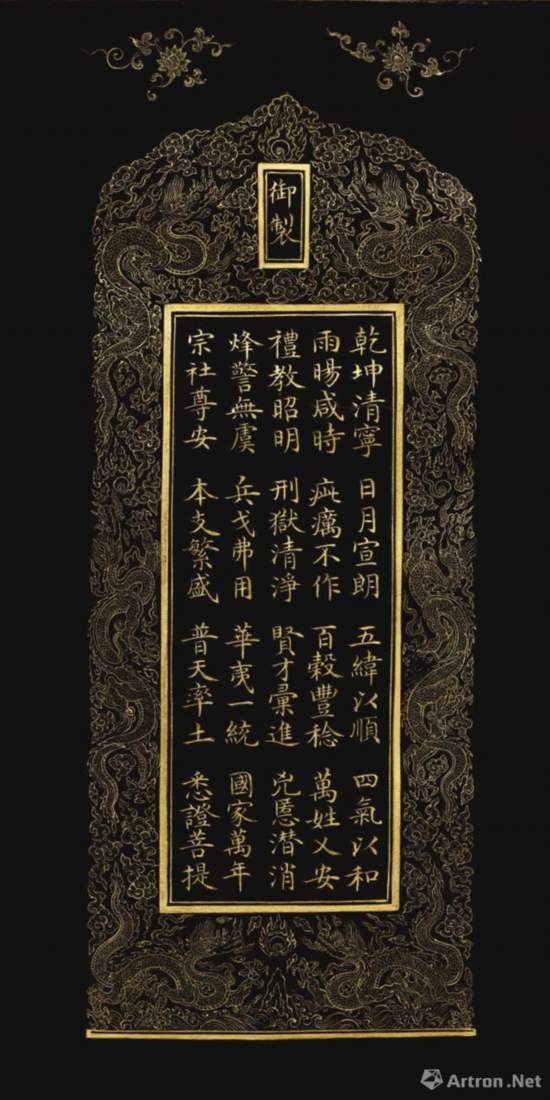 御製
乾坤清寧 日月宣朗 五緯以順 四氣以和
雨暘咸時 疵癘不作 百穀豐稔 萬姓乂安
禮教昭明 刑獄清淨 賢才彙進 兇慝潛消
烽警無虞 兵戈弗用 華夷一統 國家萬年
宗社尊安 本支繁盛 普天率土 悉證菩提
Artron.Net